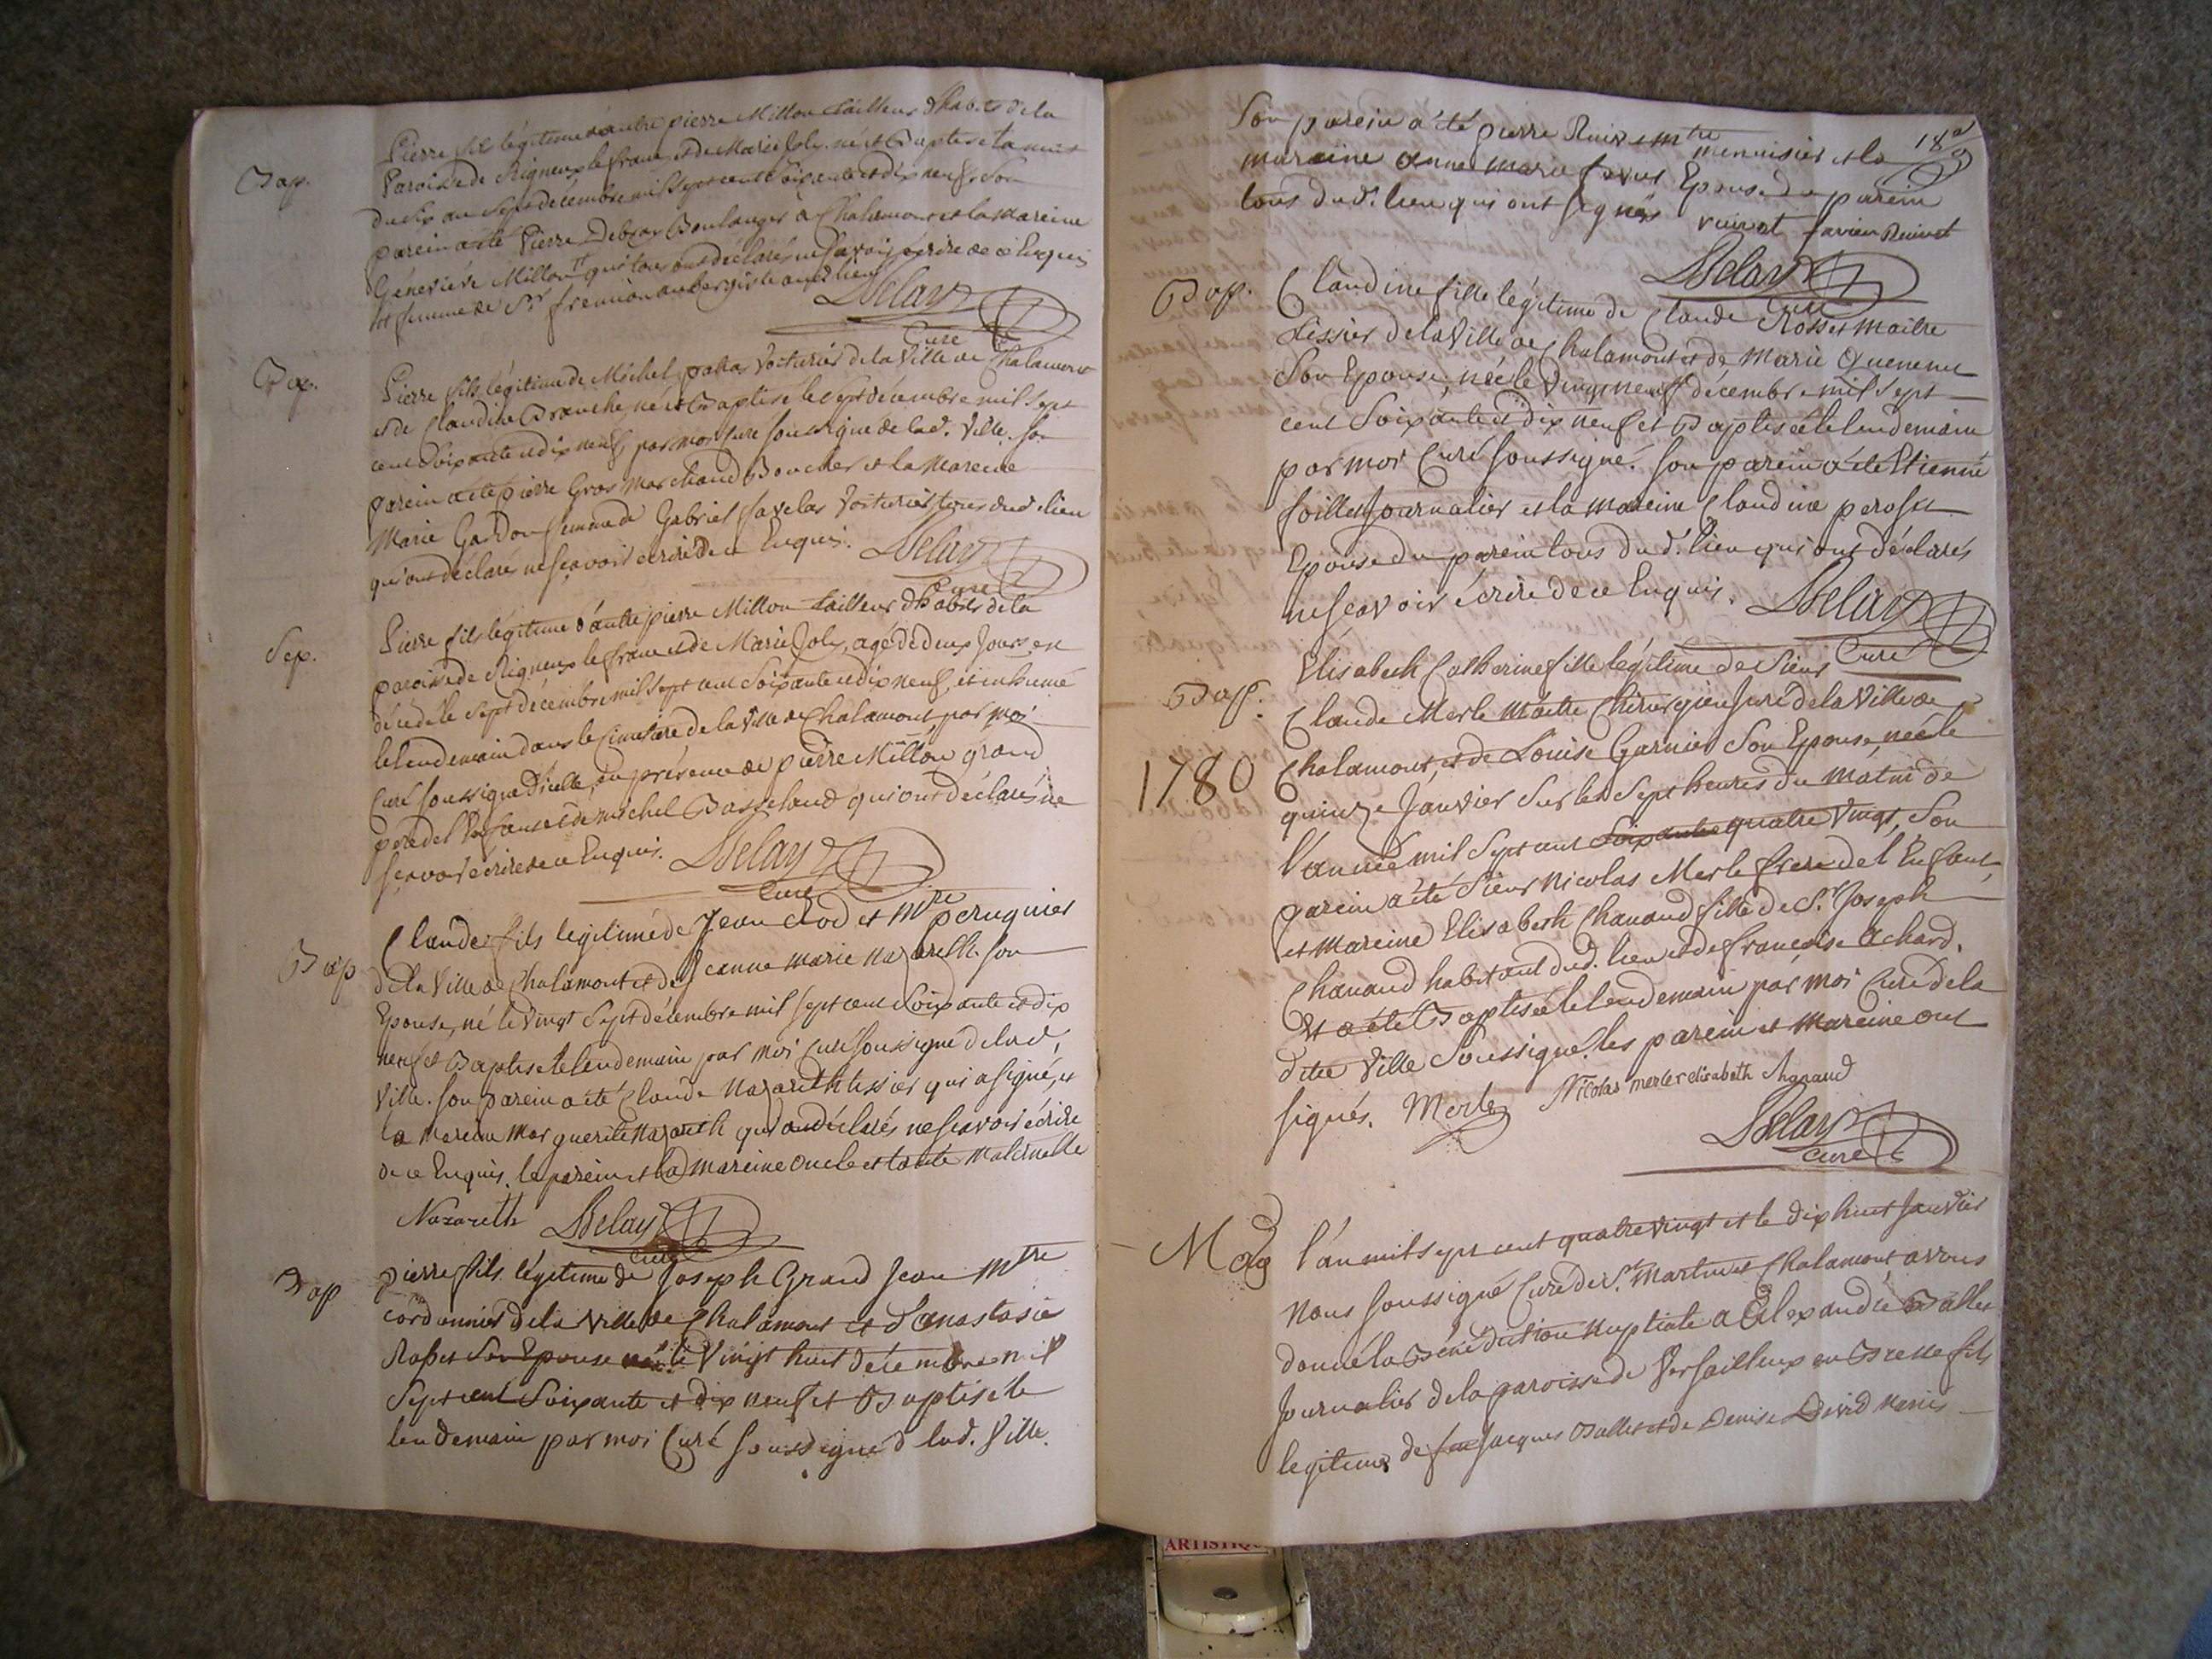 Bap.
Pierre fils légitime d'autre pierre Millon tailleur d'habits de la
Paroisse de Rigneux le franc et de Marie Joly, né et Baptisé la nuit
du six au Sept décembre mil sept cent soixante et dix neuf. Son
parein a été Pierre Debras Boulanger à Chalamont et la Mareine
Généviéve Millon qui tous ont déclarés ne sçavoir écrire de ce Enquis
femme de Sr fremion aubergiste aud. lieu
Delay
Curé
Bap.
Pierre fils légitime de Michel voiturier de la Ville de Chalamont
et de Claudine Branche, né et Baptisé le Sept décembre mil sept
cent soixante et dix neuf, par moi Curé soussigné de lad. Ville. Son
parein a été pierre Gros marchand Boucher et la Mareine
Marie Gardon femme de Gabriel favelas Voiturier tous dud. lieu
qui ont déclarés ne sçavoir écrire de ce Enquis. Delay
Curé
Sep.
Pierre fils légitime d'autre pierre Millon tailleur d'habits de la
paroisse de Rigneux le franc et de Marie Joly, agé de deux Jours, est
décédé le Sept décembre mil sept cent soixante et dix neuf, et inhumé
le lendemain dans le Cimetiére de la Ville de Chalamont par moi
Curé soussigné d'icelle, en présence de pierre Millon grand
pere de l'Enfant et de michel Basseland qui ont déclarés ne
sçavoir écrire de ce Enquis. Delay
Curé
Bap
Claude fils légitime de Jean Clod et Mtre peruquier
de la Ville de Chalamont et de Jeanne marie Nazareth. son
Epouse, né le vingt Sept décembre mil sept cent soixante et dix
neuf et Baptisé le lendemain par moi Curé soussigné de lad.
Ville. Son parein a été Claude Nazareth tissier qui a signé, et
la Mareine Marguerite Nazareth qui a déclarés ne sçavoir écrire
de ce Enquis. le parein et la mareine oncle et tante Maternelle
Nazareth Delay
Curé
Bap
pierre fils légitime de Joseph Grand Jean Mtre
cordonnier de la Ville de Chalamont et d'anastasie
Rosset Son Epouse né le vingt huit décembre mil
Sept cent Soixante et dix neuf et Baptisé le
lendemain par moi Curé Soussigné d lad. Ville.
Son parein a été pierre Ruivet Mtre menuisier et la
mareine anne marie favier Epouse du parein
tous dud. lieu qui ont signés ruivat favier Ruivat
Delay
Curé
Bap.
Claudine fille légitime de Claude Rosset maitre
tissier de la Ville de Chalamont et de Marie
Son Epouse, née le vingt neuf décembre mil sept
cent Soixante et dix neuf et Baptisée le lendemain
par moi Curé Soussigné. Son parein a été Etienne
Journalier et la mareine Claudine perosset
Epouse du parein tous dud. lieu qui ont déclarés
ne sçavoir écrire de ce Enquis. Delay
Curé
Bap.
Elisabeth Catherine fille légitime de Sieur
Claude Merle Maitre Chirurgien Juré de la Ville de
Chalamont, et de Louise Garnier Son Epouse, née le
1780
quinze Janvier Sur les Sept heures du matin de
l'année mil Sept cent Soixante quatre Vingt, Son
parein a été Sieur Nicolas Merle frere de l'Enfant
et mareine Elisabeth Chanaud fille de Sr. Joseph
Chanaud habitant dud. lieu et de francoise Achard.
Et a été Baptisée le lendemain par moi Curé de la
dite Ville Soussigné. les parein et Mareine ont
signés. Merle Nicolas merle elisabeth Chanaud
Delay
Curé
Mag
l'an mil sept cent quatre vingt et le dix huit Janvier
Nous Soussigné Curé de St. Martin et Chalamont avons
donné la Bénédiction nuptiale a Alexandre Ballet
Journalier de la paroisse de Versailleux en Bresse fils
legitime de feu Jacques Ballet et de Denise David mariés